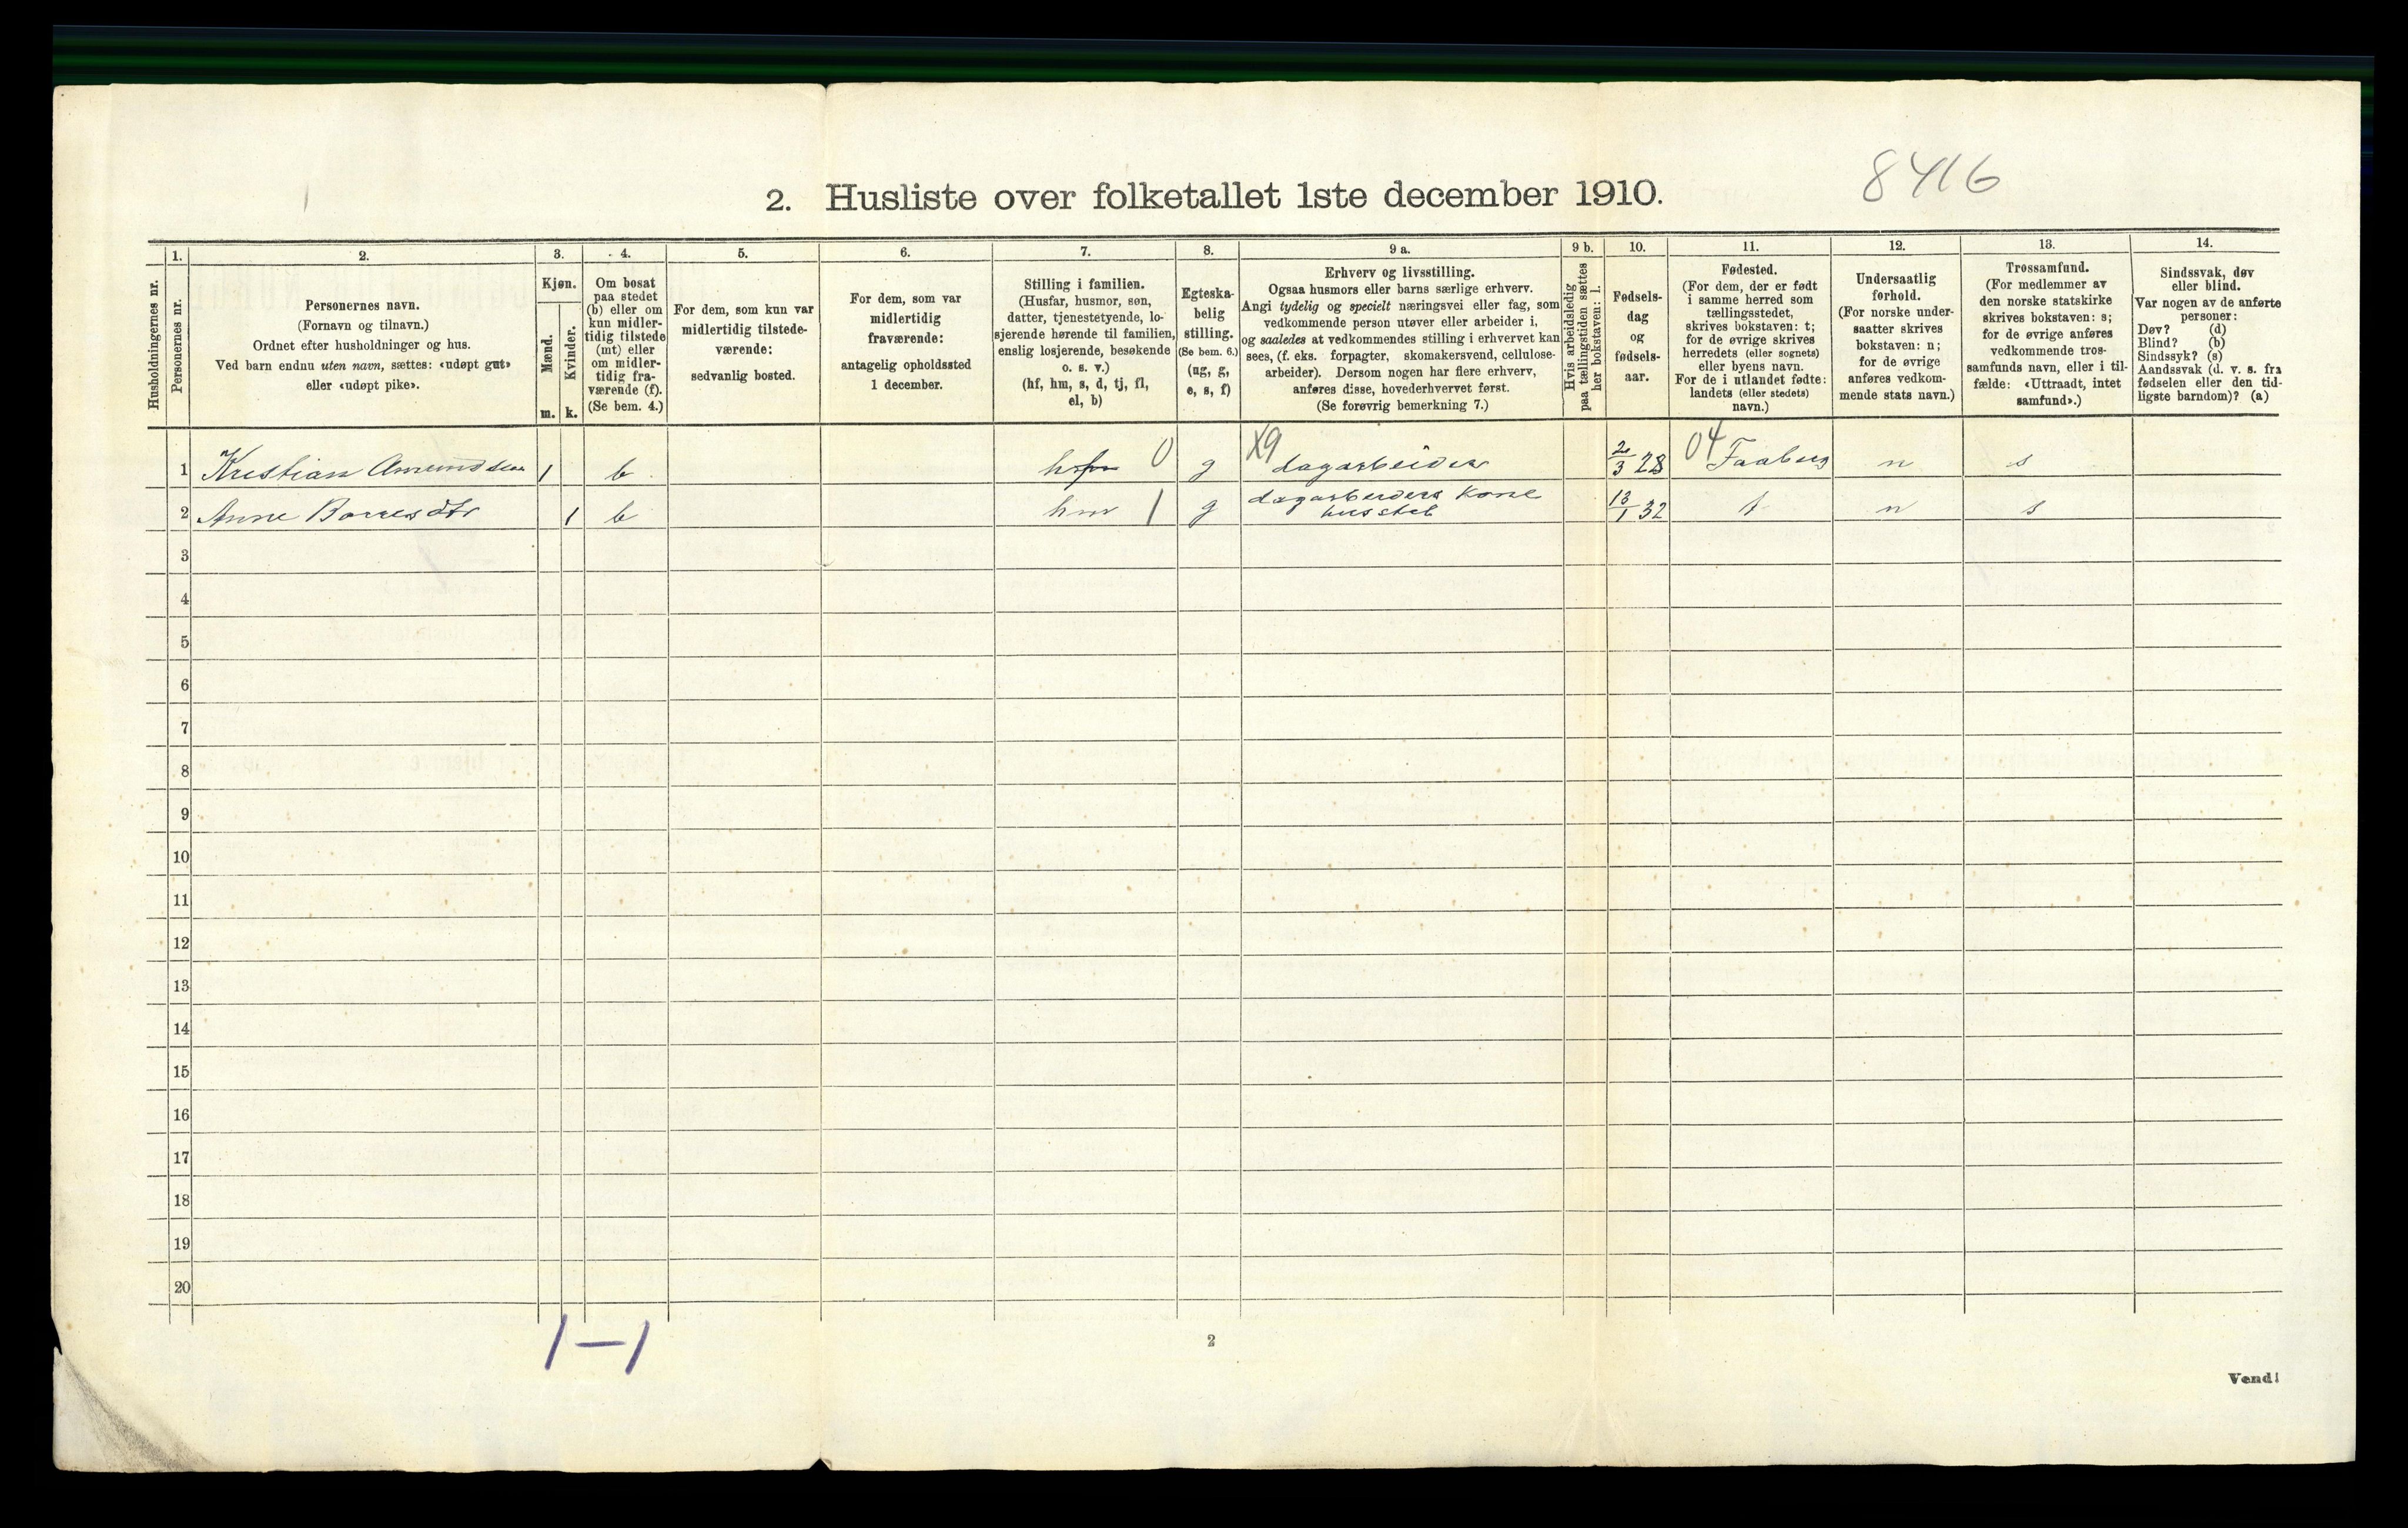 8416
2. Husliste over folketallet 1ste december 1910.
Husholdningernes nr.
1.
Personernes nr.
2.
Personernes navn.
(Fornavn og tilnavn.)
Ordnet efter husholdninger og hus.
Ved barn endnu uten navn, sættes: «udøpt gut»
eller «udøpt pike».
3.
Kjøn.
Mænd.
m.
Kvinder.
k.
4.
Om bosat
paa stedet
(b) eller om
kun midler-
tidig tilstede
(mt) eller
om midler-
tidig fra-
værende (f).
(Se bem. 4.)
5.
For dem, som kun var
midlertidig tilstede-
værende:
sedvanlig bosted.
6.
For dem, som var
midlertidig
fraværende:
antagelig opholdssted
1 december.
7.
Stilling i familien.
(Husfar, husmor, søn,
datter, tjenestetyende, lo-
sjerende hørende til familien,
enslig losjerende, besøkende
o. s. v.)
(hf, hm, s, d, tj, fl,
el, b)
8.
Egteska-
belig
stilling.
(Se bem. 6.)
(ug, g,
e, s, f)
9 a.
Erhverv og livsstilling.
Ogsaa husmors eller barns særlige erhverv.
Angi tydelig og specielt næringsvei eller fag, som
vedkommende person utøver eller arbeider i,
og saaledes at vedkommendes stilling i erhvervet kan
sees, (f. eks. forpagter, skomakersvend, cellulose-
arbeider). Dersom nogen har flere erhverv,
anføres disse, hovederhvervet først.
(Se forøvrig bemerkning 7.)
9 b.
Hvis arbeidsledig
paa tællingstiden sættes
her bokstaven: l.
10.
Fødsels-
dag
og
fødsels-
aar.
11.
Fødested.
(For dem, der er født
i samme herred som
tællingsstedet,
skrives bokstaven: t;
for de øvrige skrives
herredets (eller sognets)
eller byens navn.
For de i utlandet fødte:
landets (eller stedets)
navn.)
12.
Undersaatlig
forhold.
(For norske under-
saatter skrives
bokstaven: n;
for de øvrige
anføres vedkom-
mende stats navn.)
13.
Trossamfund.
(For medlemmer av
den norske statskirke
skrives bokstaven: s;
for de øvrige anføres
vedkommende tros-
samfunds navn, eller i til-
fælde: «Uttraadt, intet
samfund».)
14.
Sindssvak, døv
eller blind.
Var nogen av de anførte
personer:
Døv? (d)
Blind? (b)
Sindssyk? (s)
Aandssvak (d. v. s. fra
fødselen eller den tid-
ligste barndom)? (a)
1 Kristian Amundsen 1 b 0 g X9 dagarbeider 2/3 28 04 Faaberg n s
2 Anne 1 b hm 1 g dagarbeiders kone 13/1 32 t n s
husstel
3
4
5
6
7
8
9
10
11
12
13
14
15
16
17
18
19
20
1–1
2
Vend!